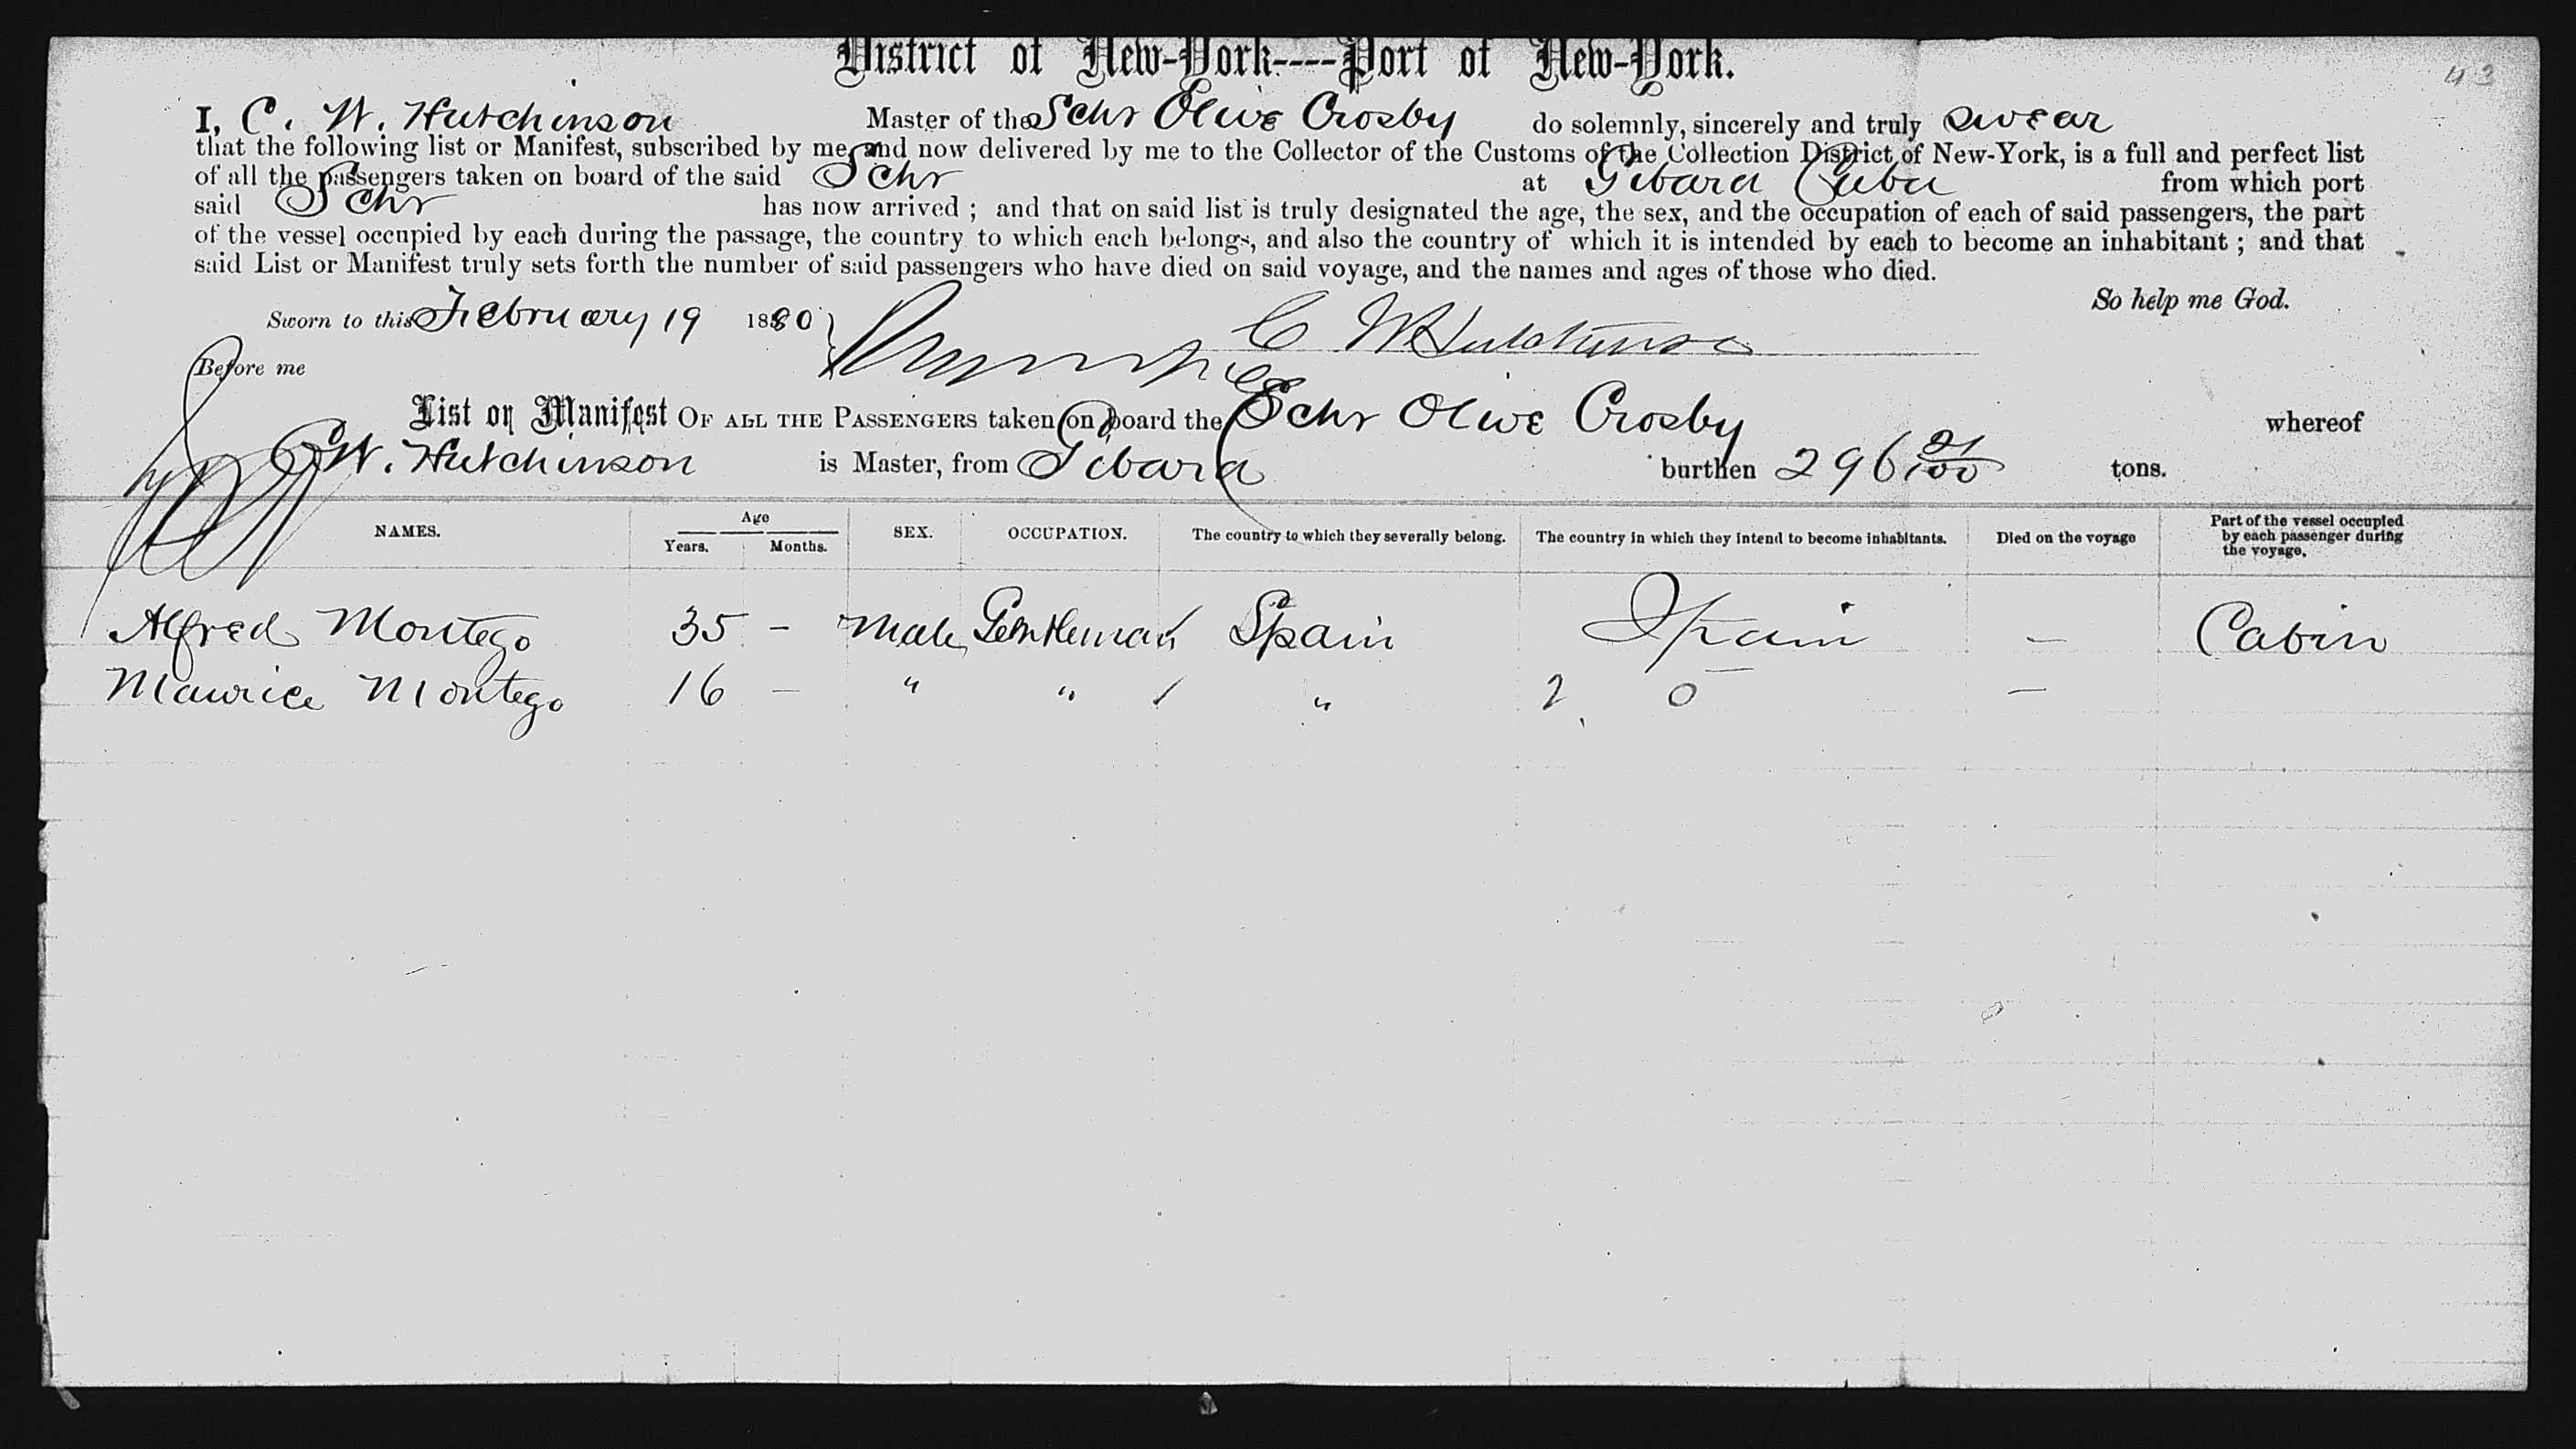 District of New-York----Port of New-York.
43
I, C. W. Hutchinson Master of the Schr Olive Crosby do solemnly, sincerely and truly swear
that the following list or Manifest, subscribed by me and now delivered by me to the Collector of the Customs of the Collection District of New-York, is a full and perfect list
of all the passengers taken on board of the said Schr at Gibara Cuba from which port
said Schr has now arrived ; and that on said list is truly designated the age, the sex, and the occupation of each of said passengers, the part
of the vessel occupied by each during the passage, the country to which each belongs, and also the country of which it is intended by each to become an inhabitant ; and that
said List or Manifest truly sets forth the number of said passengers who have died on said voyage, and the names and ages of those who died.
So help me God.
Sworn to this February 19 1880
C W Hutchinson
Before me
List or Manifest OF ALL THE PASSENGERS taken on board the Schr Olive Crosby whereof
C W. Hutchinson is Master, from Gibara burthen 296 21/100 tons.
NAMES. Age Years. Months. SEX. OCCUPATION. The country to which they severally belong. The country in which they intend to become inhabitants. Died on the voyage Part of the vessel occupied by each passenger during the voyage.
Alfred Montego 35 - Male Gentleman / Spain Spain - Cabin
Maurice Montego 16 - " " / " 2 0 -